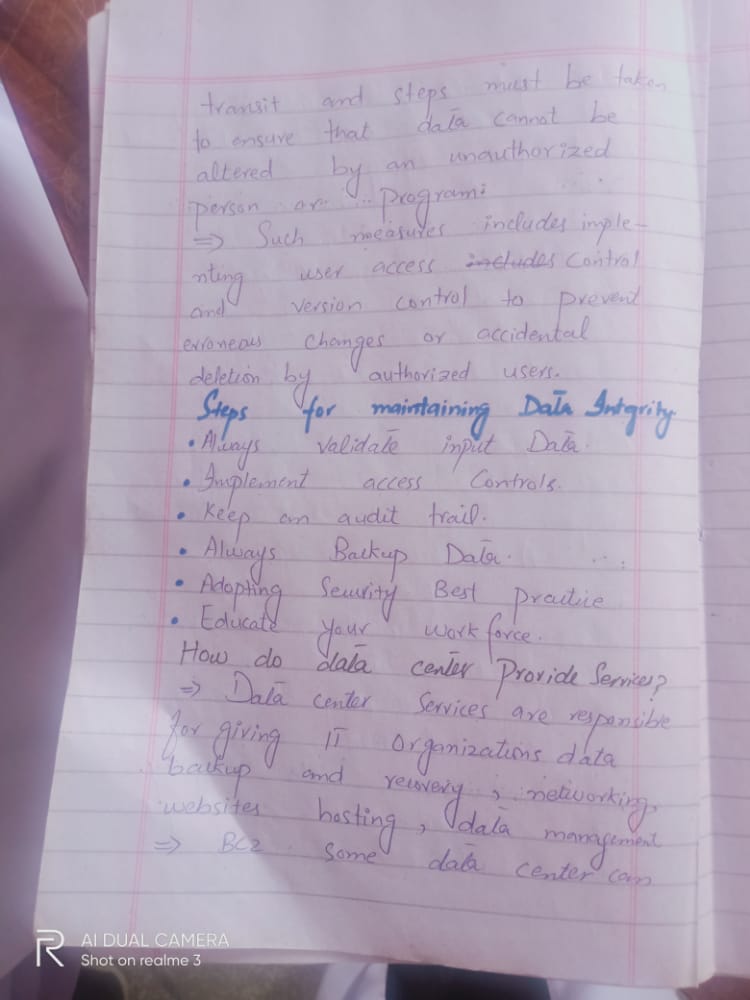 transit and steps must be taken
to ensure that data cannot be
altered by an unauthorized
person or program:
=> Such measures includes imple-
nting user access includes Control
and version control to prevent
erroneous changes or accidental
deletion by authorized users.
Steps for maintaining Data Intgrity
• Always validate input Data.
• Implement access Controls.
• Keep an audit trail.
• Always Backup Data.
• Adopting Security Best practice
• Educate your workforce.
How do data center Provide Services?
=> Data center Services are responsible
for giving IT organizations data
backup and recovery, networking,
websites hosting, data management
=> BCZ some data center can
AI DUAL CAMERA
Shot on realme 3